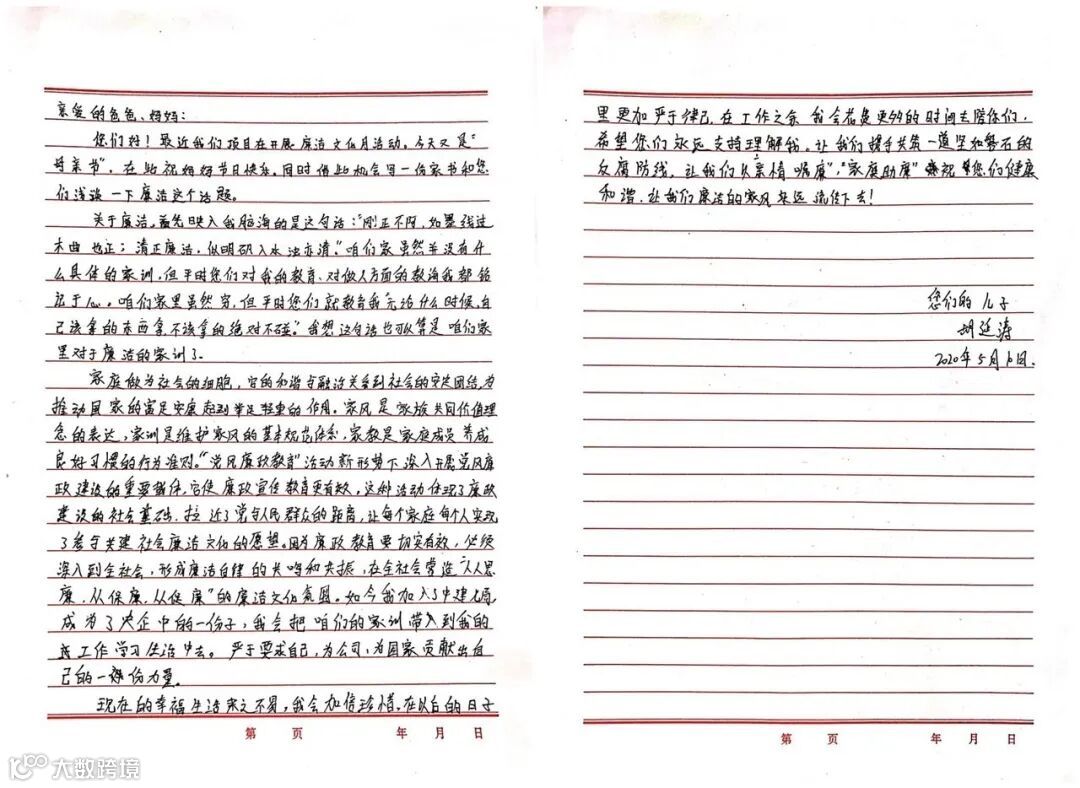 亲爱的爸爸、妈妈：
您们好！最近我们项目在开展廉洁文化月活动，今天又是“
母亲节”，在此祝妈妈节日快乐。同时借此机会写一份家书和您
们浅谈一下廉洁这个话题。
关于廉洁，首先映入我脑海的是这句话：“刚正不阿，如墨线过
木曲也正；清正廉洁，似明矾入水浊亦清。”咱们家虽然并没有什
么具体的家训，但平时您们对我的教育、对做人方面的教诲我都铭
记于心。咱们家里虽然穷，但平时您们就教育我“无论什么时候，自
己该拿的东西拿，不该拿的绝对不碰。”我想这句话也可以算是咱们家
里对于廉洁的家训了。
家庭做为社会的细胞，它的和谐与融洽关系到社会的安定团结，为
推动国家的富足安康起到举足轻重的作用。家风是家族共同价值理
念的表达，家训是维护家风的基本规范体系，家教是家庭成员养成
良好习惯的行为准则。“党风廉政教育”活动新形势下深入开展党风廉
政建设的重要载体，它使廉政宣传教育更有效，这种活动体现了廉政
建设的社会基础，拉近了党与人民群众的距离，让每个家庭每个人实现
了参与共建社会廉洁文化的愿望。因为廉政教育要切实有效，必须
深入到全社会，形成廉洁自律的共鸣和共振，在全社会营造“人人思
廉，人人保廉，人人促廉”的廉洁文化氛围。如今我加入了中建七局，
成为了央企中的一份子，我会把咱们的家训带入到我的
工作学习生活中去。严于要求自己，为公司、为国家贡献出自
己的一份力量。
现在的幸福生活来之不易，我会加倍珍惜，在以后的日子
第 页 年 月 日
里更加严于律己，在工作之余，我会花费更多的时间去陪您们，
希望您们永远支持理解我。让我们携手共筑一道坚如磐石的
反腐防线，让我们以“亲情嘱廉”，“家庭助廉”祝您们健康
和谐，让我们廉洁的家风永远流传下去！
您们的儿子
胡廷涛
2020年5月10日
第 页 年 月 日
大数跨境